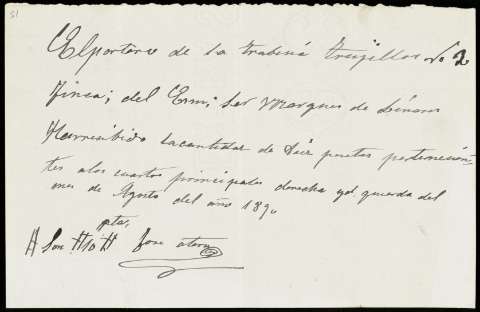 51
El portero de la trabesia trujillos No 2
Finca; del Exmi; Sor Marques de Linares
Harresibido lacantidaz de Diez pesetas pertenecien-
tes alos cuartos principales derecha yd quierda del
mes de Agosto del año 1890
pts,
H Son #10 # Jose